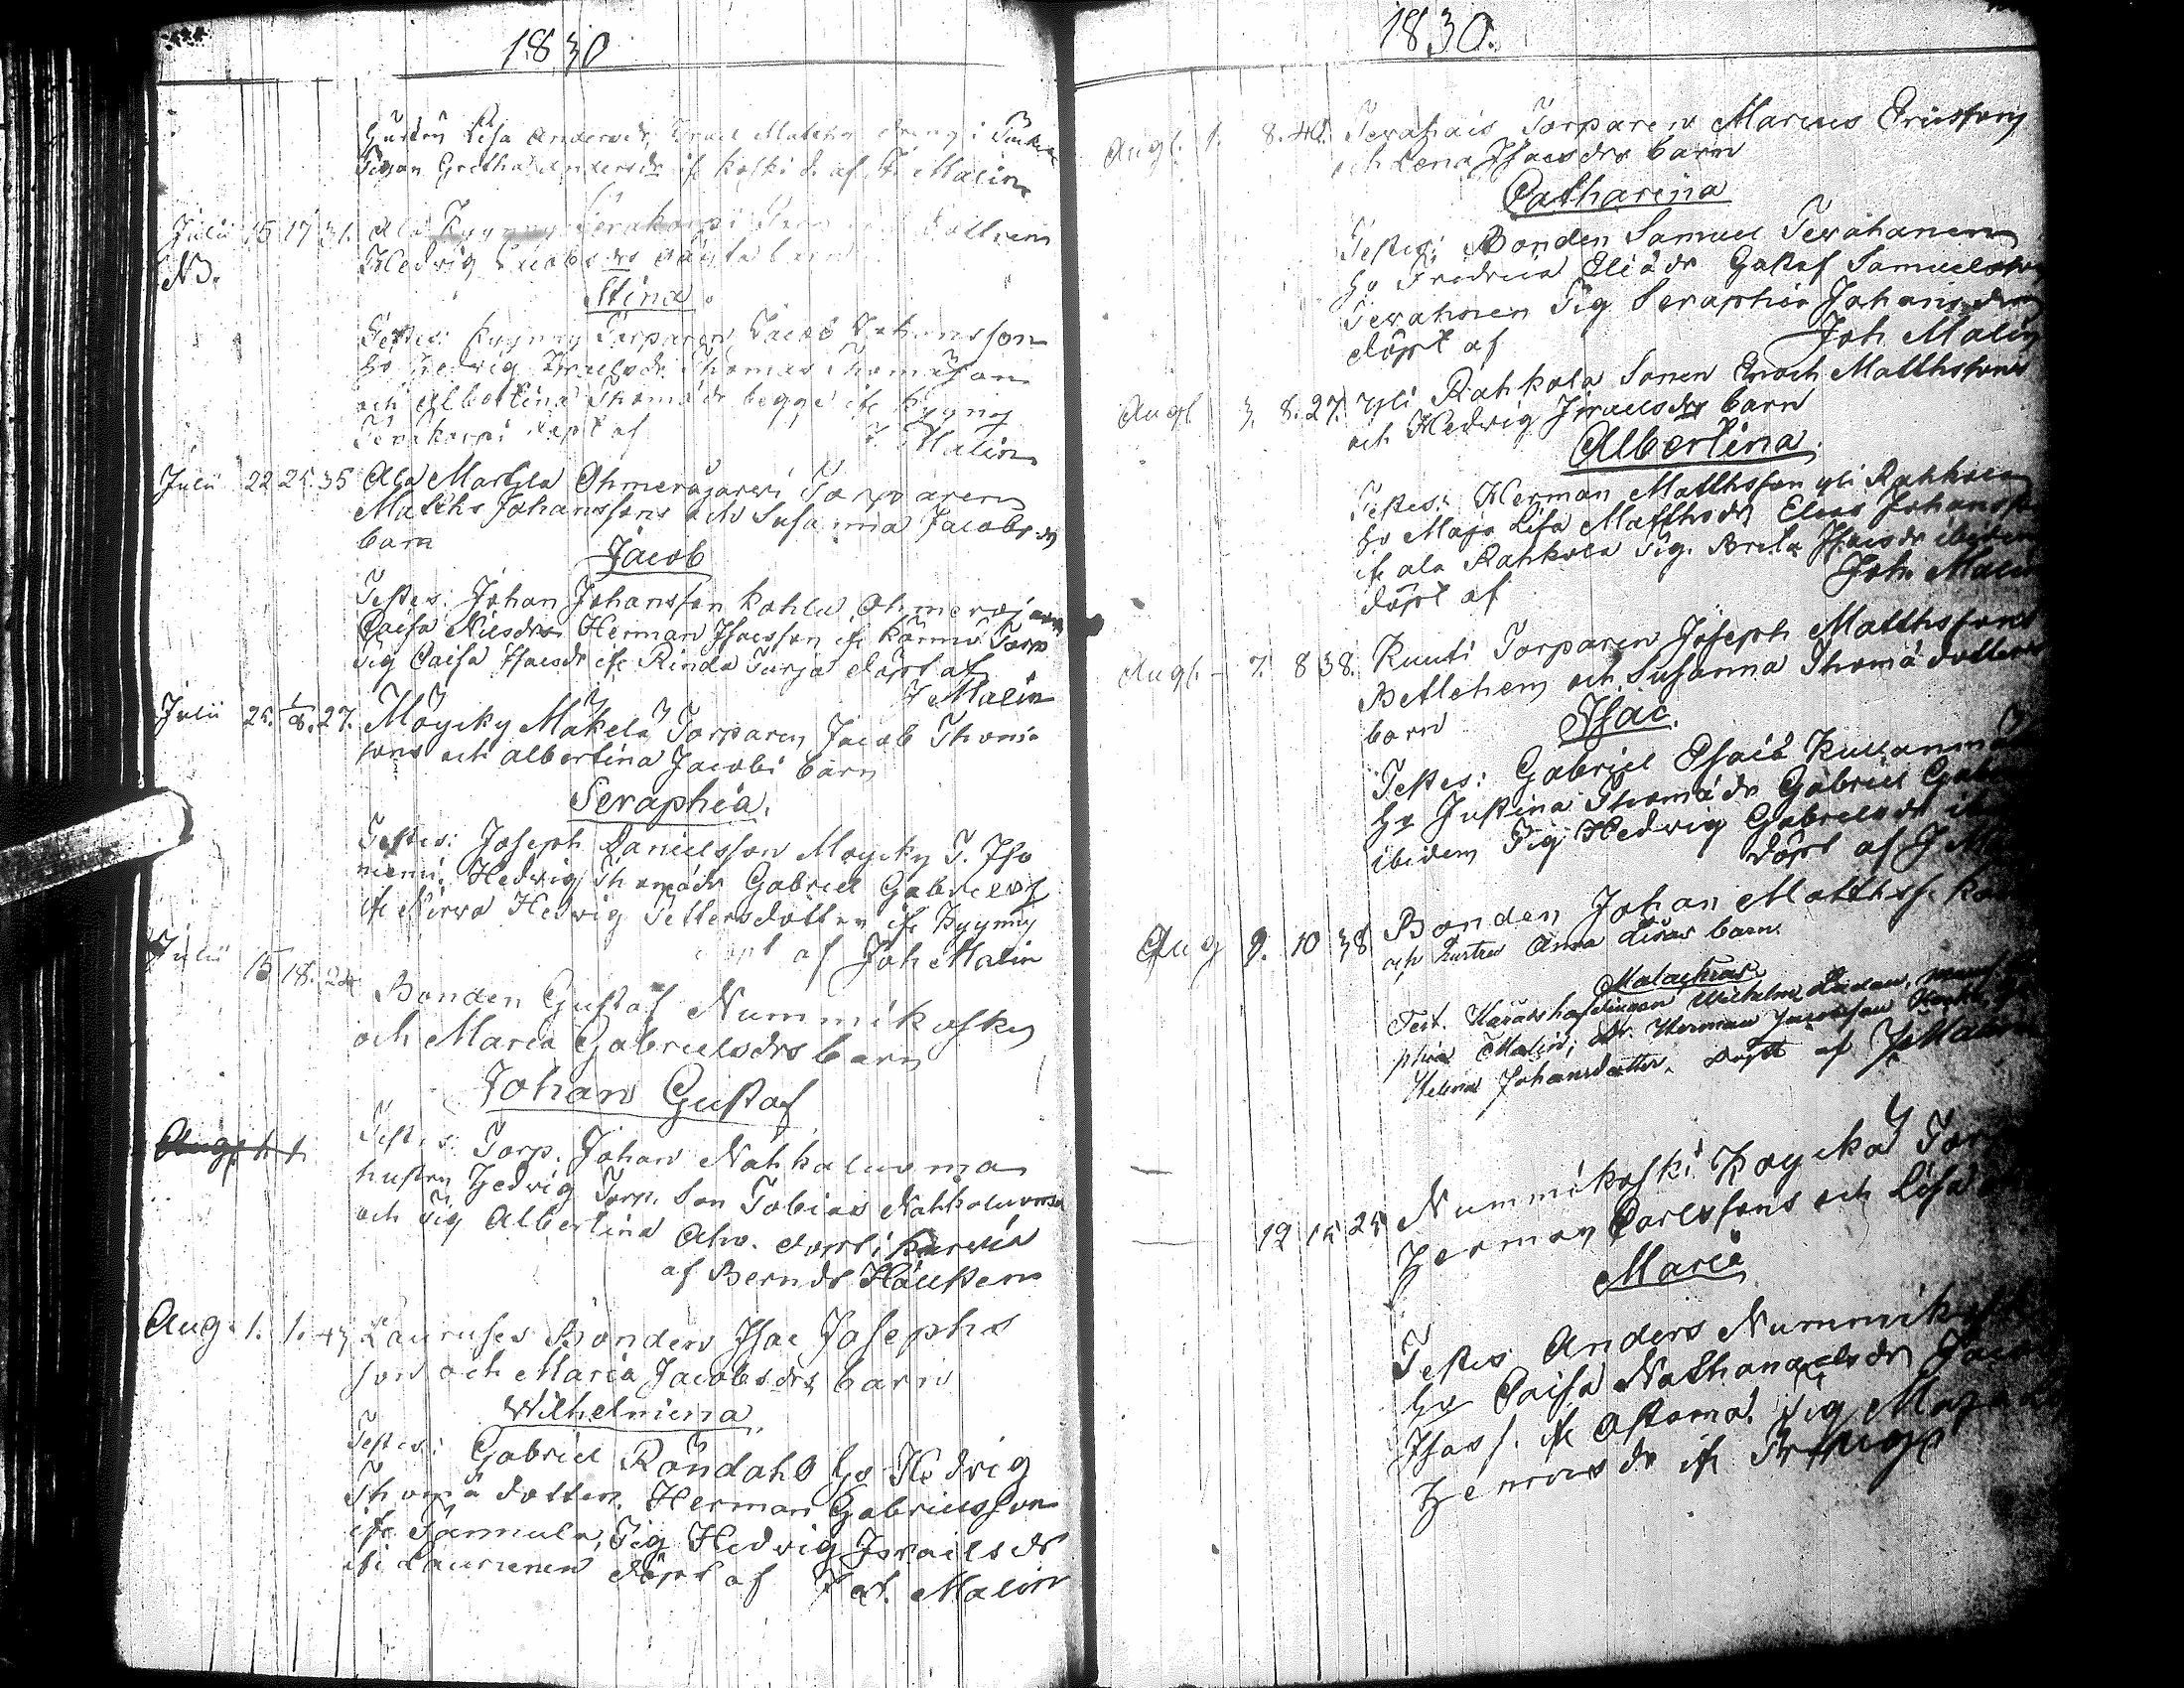 1830
Hustru Lisa Andersdr, Matths dreng i
Pigan Gretha Andersdr ifr Koski d. af J. Malin
Julii 15 17 31. Ala Kyynny Perakorpi
NB. Hedvig Jacobsdrs oägta barn
Stina
Testes: Kyynny Torparen Jacob Johansson
Hu Hedvig Israelsdr Thomas Thomasson
och Albertina Thomadr begge ifr Kyynny
Perakorpi döpt af J. Malin
Julii 22 25. 35 Ala Martila Ohmerojarvi Torparen
Matths Johanssons och Susanna Jacobsdrs
barn Jacob
Testes: Johan Johansson Kahlu Ohmeroj
Caisa Nilsdr Herman Isacsson ifr Torp
Pig Caisa Isacsdr ifr Rinda Turja döpt af
J Malin
Julii 25. 1/8. 27. Möycky Mäkelä Torparen Jacob Thoma
sons och Albertina Jacobi barn
Seraphia.
Testes: Joseph Danielsson Moycky T. Iso
niemi. Hedvig Thomädr Gabriel Gabrielss
ifr Hirva Hedvig Pettersdotter ifr Kyynny
döpt af Joh Malin
Julii 15 18. 24 Bonden Gustaf Nummikosky
och Maria Gabrielsdrs barn
Johan Gustaf
Aug. 1. 1. Testes: Torp. Johan Nahkaluoma
hustru Hedvig Torp. Son Tobias Nahkaluoma
och Pig Albertina Aho. döpt i Karvia
af Berndt Häusten
Aug. 1. 1. 43 Lauruses Bonden Isac Josephs
son och Maria Jacobsdrs barn
Wilhelmina
Testes: Gabriel Röndahl Hu Hedvig
Thomä dotter. Herman Gabrielsson
ifr Jämmula, Pig Hedvig Israelsdr
ifr Laurinen döpt af Joh. Malin
1830.
Augl. 1. 8. 40. Perähais Torparen Marcus Ericssons
och Lena Isacsdrs barn
Catharina
Testes: Bonden Samuel Perähanen
Hu Fredrica Eliädr Gustaf Samuelsson
Perahnen Pig Seraphia Johansdr
döpt af Joh Malin
Augl 3. 8. 27. yli Rahkola Sonen Enoch Matthssons
och Hedvig Israelsdrs barn
Albertina.
Testes: Herman Matthsson yli Rahkola
Hu Maja Lisa Matthsdr Elias Johanss
ifr ala Rahkola Pig. Brita Isacsdr ibidem
döpt af Joh. Malin
Augl. 7. 8 38. Kuuti Torparen Joseph Matthssons
Betlehem och Susanna Thomä dotters
barn Isac.
Testes: Gabriel Isacs Kullanmä
Hu Justina Thomädr Gabriel Gab
ibidem Pig Hedvig Gabrielsdr
döpt af J M
Aug 9. 10 38 Bonden Johan Matthss. Ka
och hustru Anna Lisas barn.
Malachias
Test. Häradshöfdingen Wilhelm
phia Malin; Dr. Herman Jacobsson
Helena Johansdotter. Döpt af J. Malin
12 15 25 Nummikoski Koycka Torp
Herman Carlssons och Lisa
Maria
Testes Anders Nummikoski
Hu Caisa Nathanaelsdr Jaco
Isacs. ifr Alkoma. Pig Maja
Henricsdr ifr